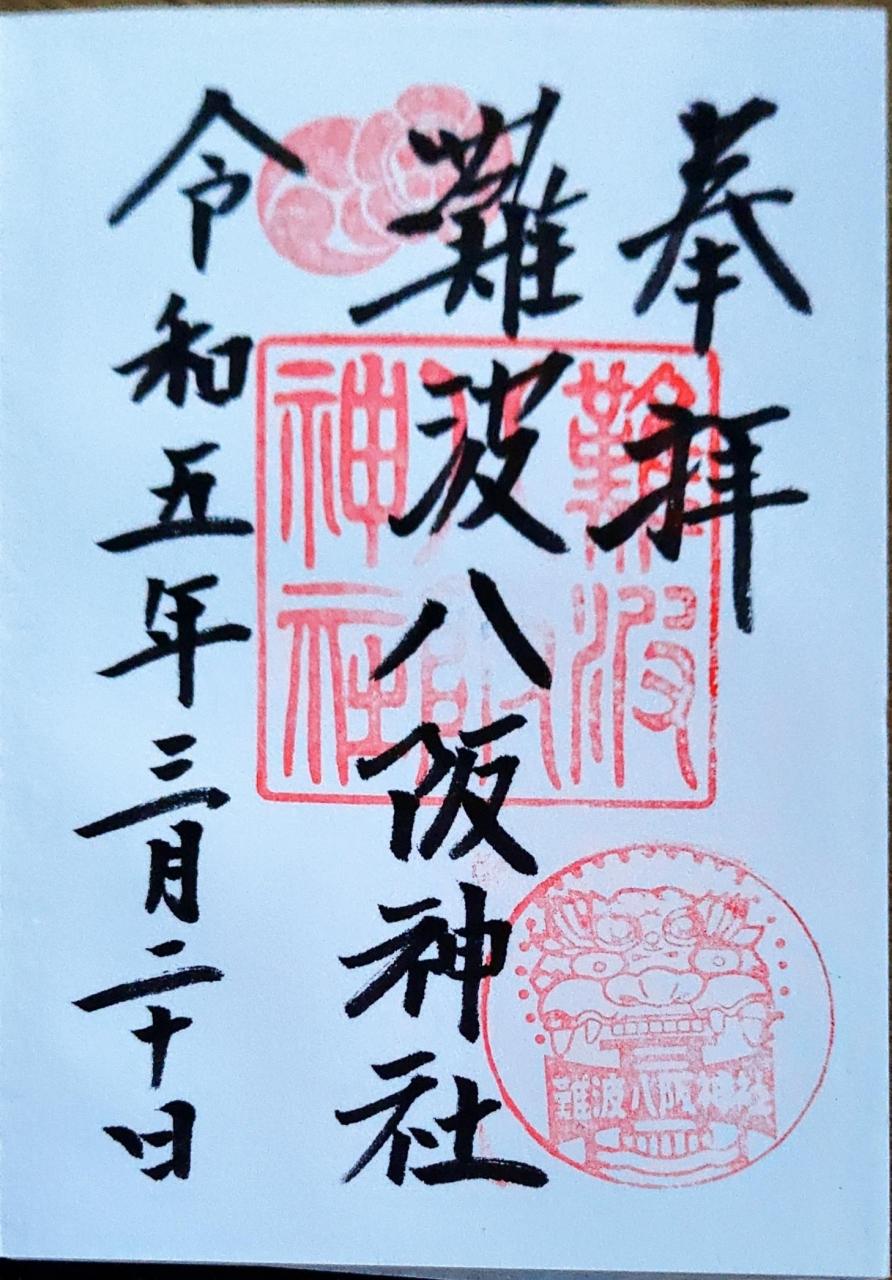 奉拝
難波八阪神社
令和五年三月二十日
難波八阪神社
難波八阪神社